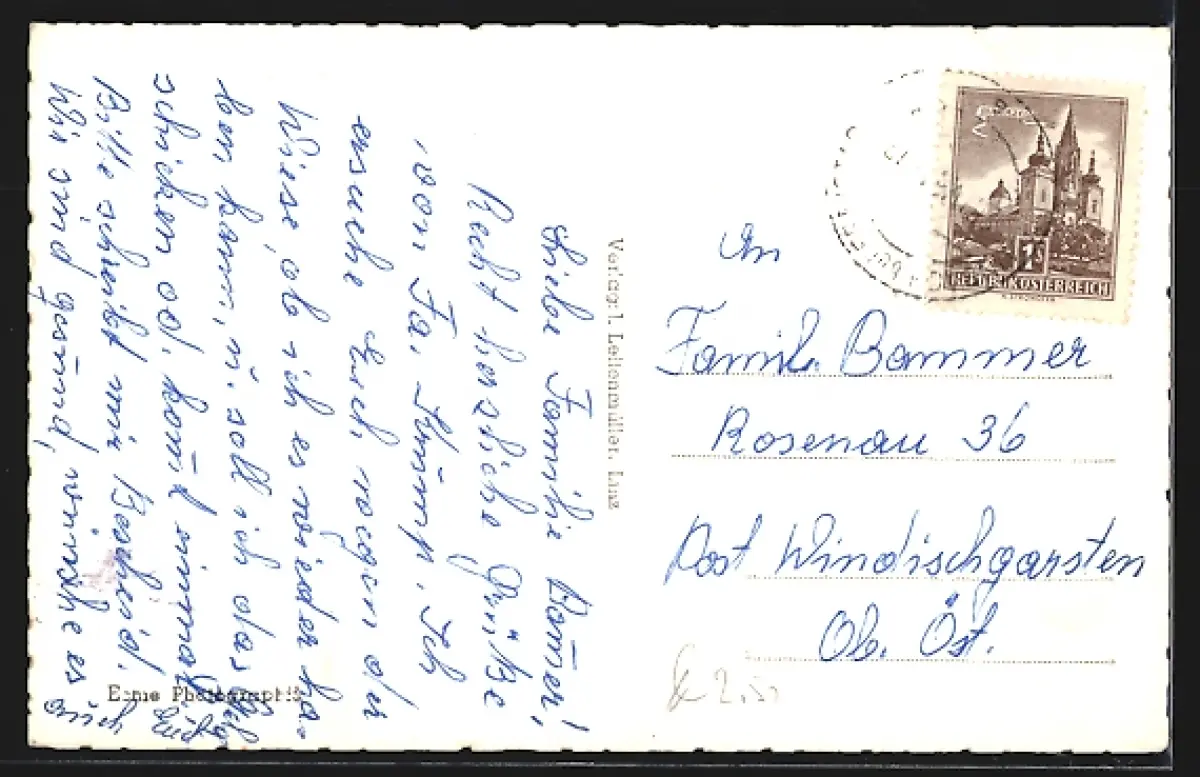 Liebe Familie Bam̄er!
Recht herzliche Grüße
von Fa. Kump. Ich
ersuche Euch wegen der
Wiese, ob ich es wieder ha-
ben kann, u. soll ich das Geld
schicken od. kom̄t einmal
Bitte schreibt mir Bescheid.
Wir sind gesund, wünsche es
auch Euch
Echte Photographie
Verlag: J. Lellenmüller, Linz
1 S
REPUBLIK ÖSTERREICH
An
Familie Bammer
Rosenau 36
Post Windischgarsten
Ob. Öst.